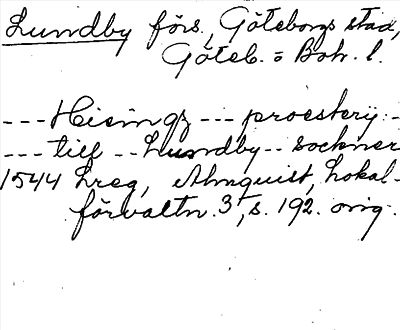 Lundby förs., Göteborgs stad,
Göteb. o Boh. l.
--- Hisingz --- proestery: -
--- till -- Lundby -- sockner
1544 Lreg, Almquist, Lokal-
förvaltn. 3, s. 192. orig.